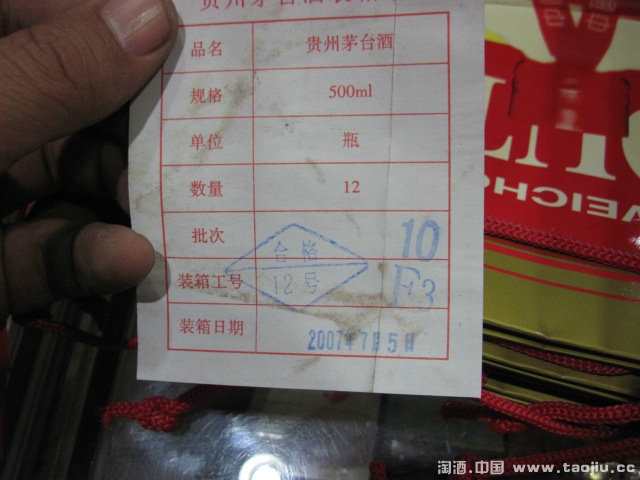 贵州茅台酒装箱单
品名 贵州茅台酒
规格 500ml
单位 瓶
数量 12
批次 10
装箱工号 F3
合格
12号
装箱日期 2007年7月5日
WEICHO
淘酒.中国 www.taojiu.cc